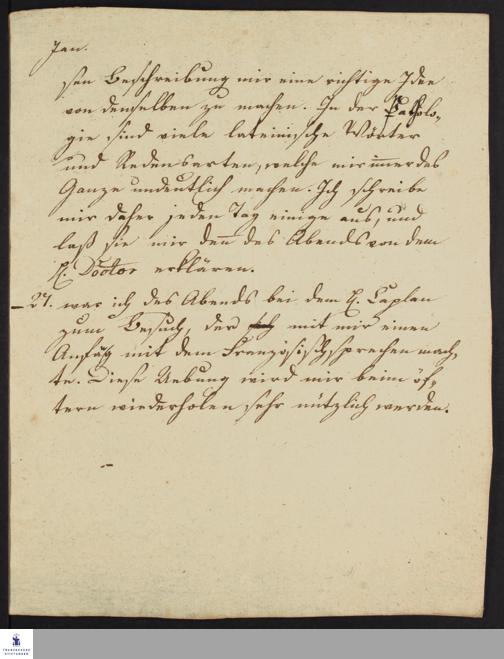 Jan.
sen Beschreibung mir eine richtige Idee
von denselben zu machen. In der Patholo-
gie sind viele lateinische Wörter
und Redensarten, welche mir immer das
Ganze undeutlich machen. Ich schreibe
mir daher jeden Tag einige aus, und
laß sie mir den̅ des Abends von dem
H. Doctor erklären.
– 27. war ich des Abends bei dem H. Caplan
zum Besuch, der mit mir einen
Anfang mit dem Französischsprechen mach-
te. Diese Uebung wird mir beim öf-
tern wiederholen sehr nützlich werden.
FRANCKESCHE
STIFTUNGEN